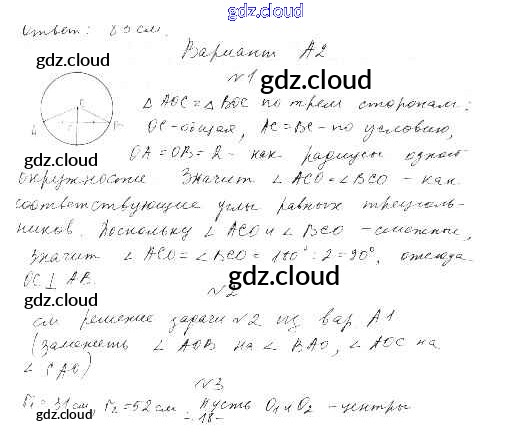 gdz.cloud
Ответ: 83 см.
gdz.cloud
Вариант А2
№1
gdz.cloud
△ AOC = △ BOC по трем сторонам:
OC - общая, AC = BC - по условию,
gdz.cloud
OA = OB = 2 - как радиусы одной
окружности. Значит ∠ ACO = ∠ BCO - как
gdz.cloud
соответствующие углы равных треуголь-
ников. Поскольку ∠ ACO и ∠ BCO - смежные,
gdz.cloud
значит ∠ ACO = ∠ BCO = 180° : 2 = 90°, отсюда
OC ⊥ AB.
gdz.cloud
№2
gdz.cloud
см. решение задачи №2 из вар. А1
(заменить ∠ AOB на ∠ BAO, ∠ AOC на
gdz.cloud
∠ CAO)
№3
gdz.cloud
r₁ = 31 см, r₂ = 52 см. Пусть O₁ и O₂ - центры
gdz.cloud
- 18 -